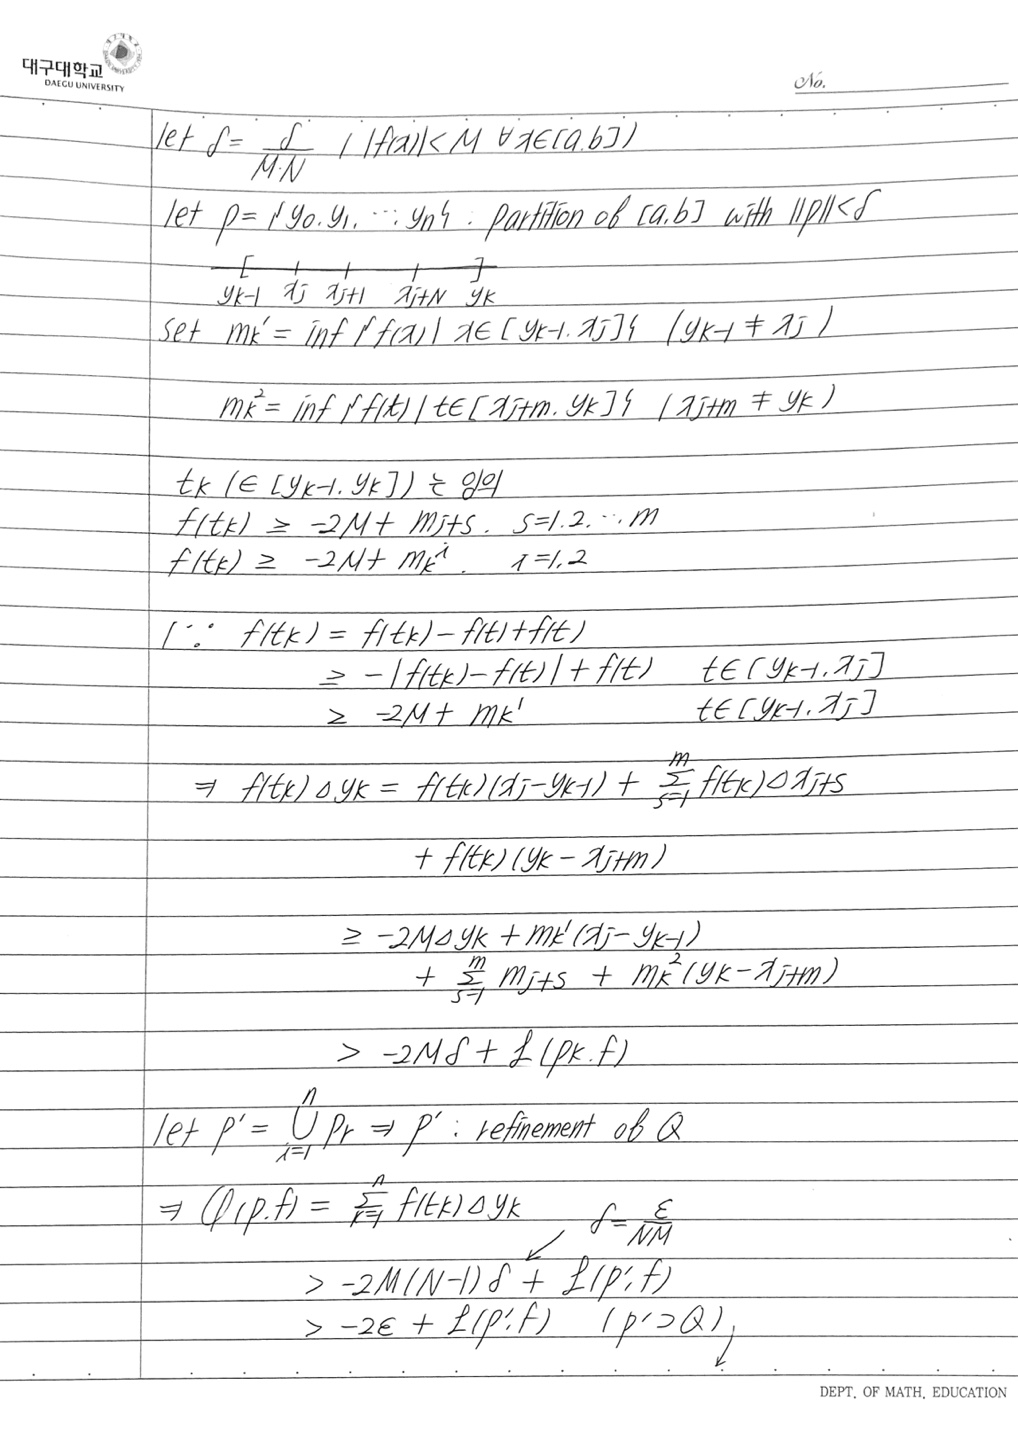 대구대학교
DAEGU UNIVERSITY
No.
let δ = δ/(M·N) ( |f(x)| < M ∀x∈[a.b])
let p = {y0.y1. ⋯ yn} : partition of [a.b] with ||p|| < δ
yk-1 xj xj+1 xj+N yk
set mk' = inf{f(x) | x∈[yk-1.xj]} (yk-1 ≠ xj)
mk² = inf{f(t) | t∈[xj+m.yk]} (xj+m ≠ yk)
tk (∈[yk-1.yk])는 임의
f(tk) ≥ -2M + mj+s. s=1.2.⋯m
f(tk) ≥ -2M + mk^i. i=1.2
(∵ f(tk) = f(tk) - f(t) + f(t)
≥ -|f(tk) - f(t)| + f(t) t∈[yk-1.xj]
≥ -2M + mk' t∈[yk-1.xj]
⇒ f(tk)△yk = f(tk)(xj - yk-1) + Σ_{s=1}^{m} f(tk)△xj+s
+ f(tk)(yk - xj+m)
≥ -2M△yk + mk'(xj - yk-1)
+ Σ_{s=1}^{m} mj+s + mk²(yk - xj+m)
> -2Mδ + L(pk.f)
let p' = ⋃_{i=1}^{n} pr ⇒ p' : refinement of Q
⇒ φ(p.f) = Σ_{r=1}^{n} f(tk)△yk
δ = ε/NM
> -2M(N-1)δ + L(p'.f)
> -2ε + L(p'.f) (p'⊃Q)
DEPT. OF MATH. EDUCATION